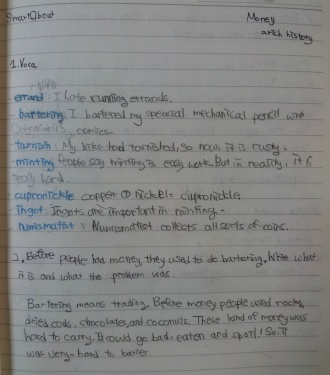 Smart About
Money
a rich history
1. Voca
errand : I hate running errands.
bartering : I bartered my speacial mechanical pencil with
comics.
tarnish : My bike had tarnisted, So now it is rusty.
minting : People say minting is easy work. But in reality, it is
really hard.
cupronickle : copper ⊕ nickel = cupronickle.
ingot : Ingots are important in minting.
numismatist : Numismatist collects all sorts of coins.
2. Before people had money, they used to do bartering, Write what
it is and what the problem was.
Bartering means trading. Before money people used rocks,
dried cods, chocolates, and coconuts. These kind of money was
hard to carry. It could go bad, eaten and spoil! So it
was very hard to barter.